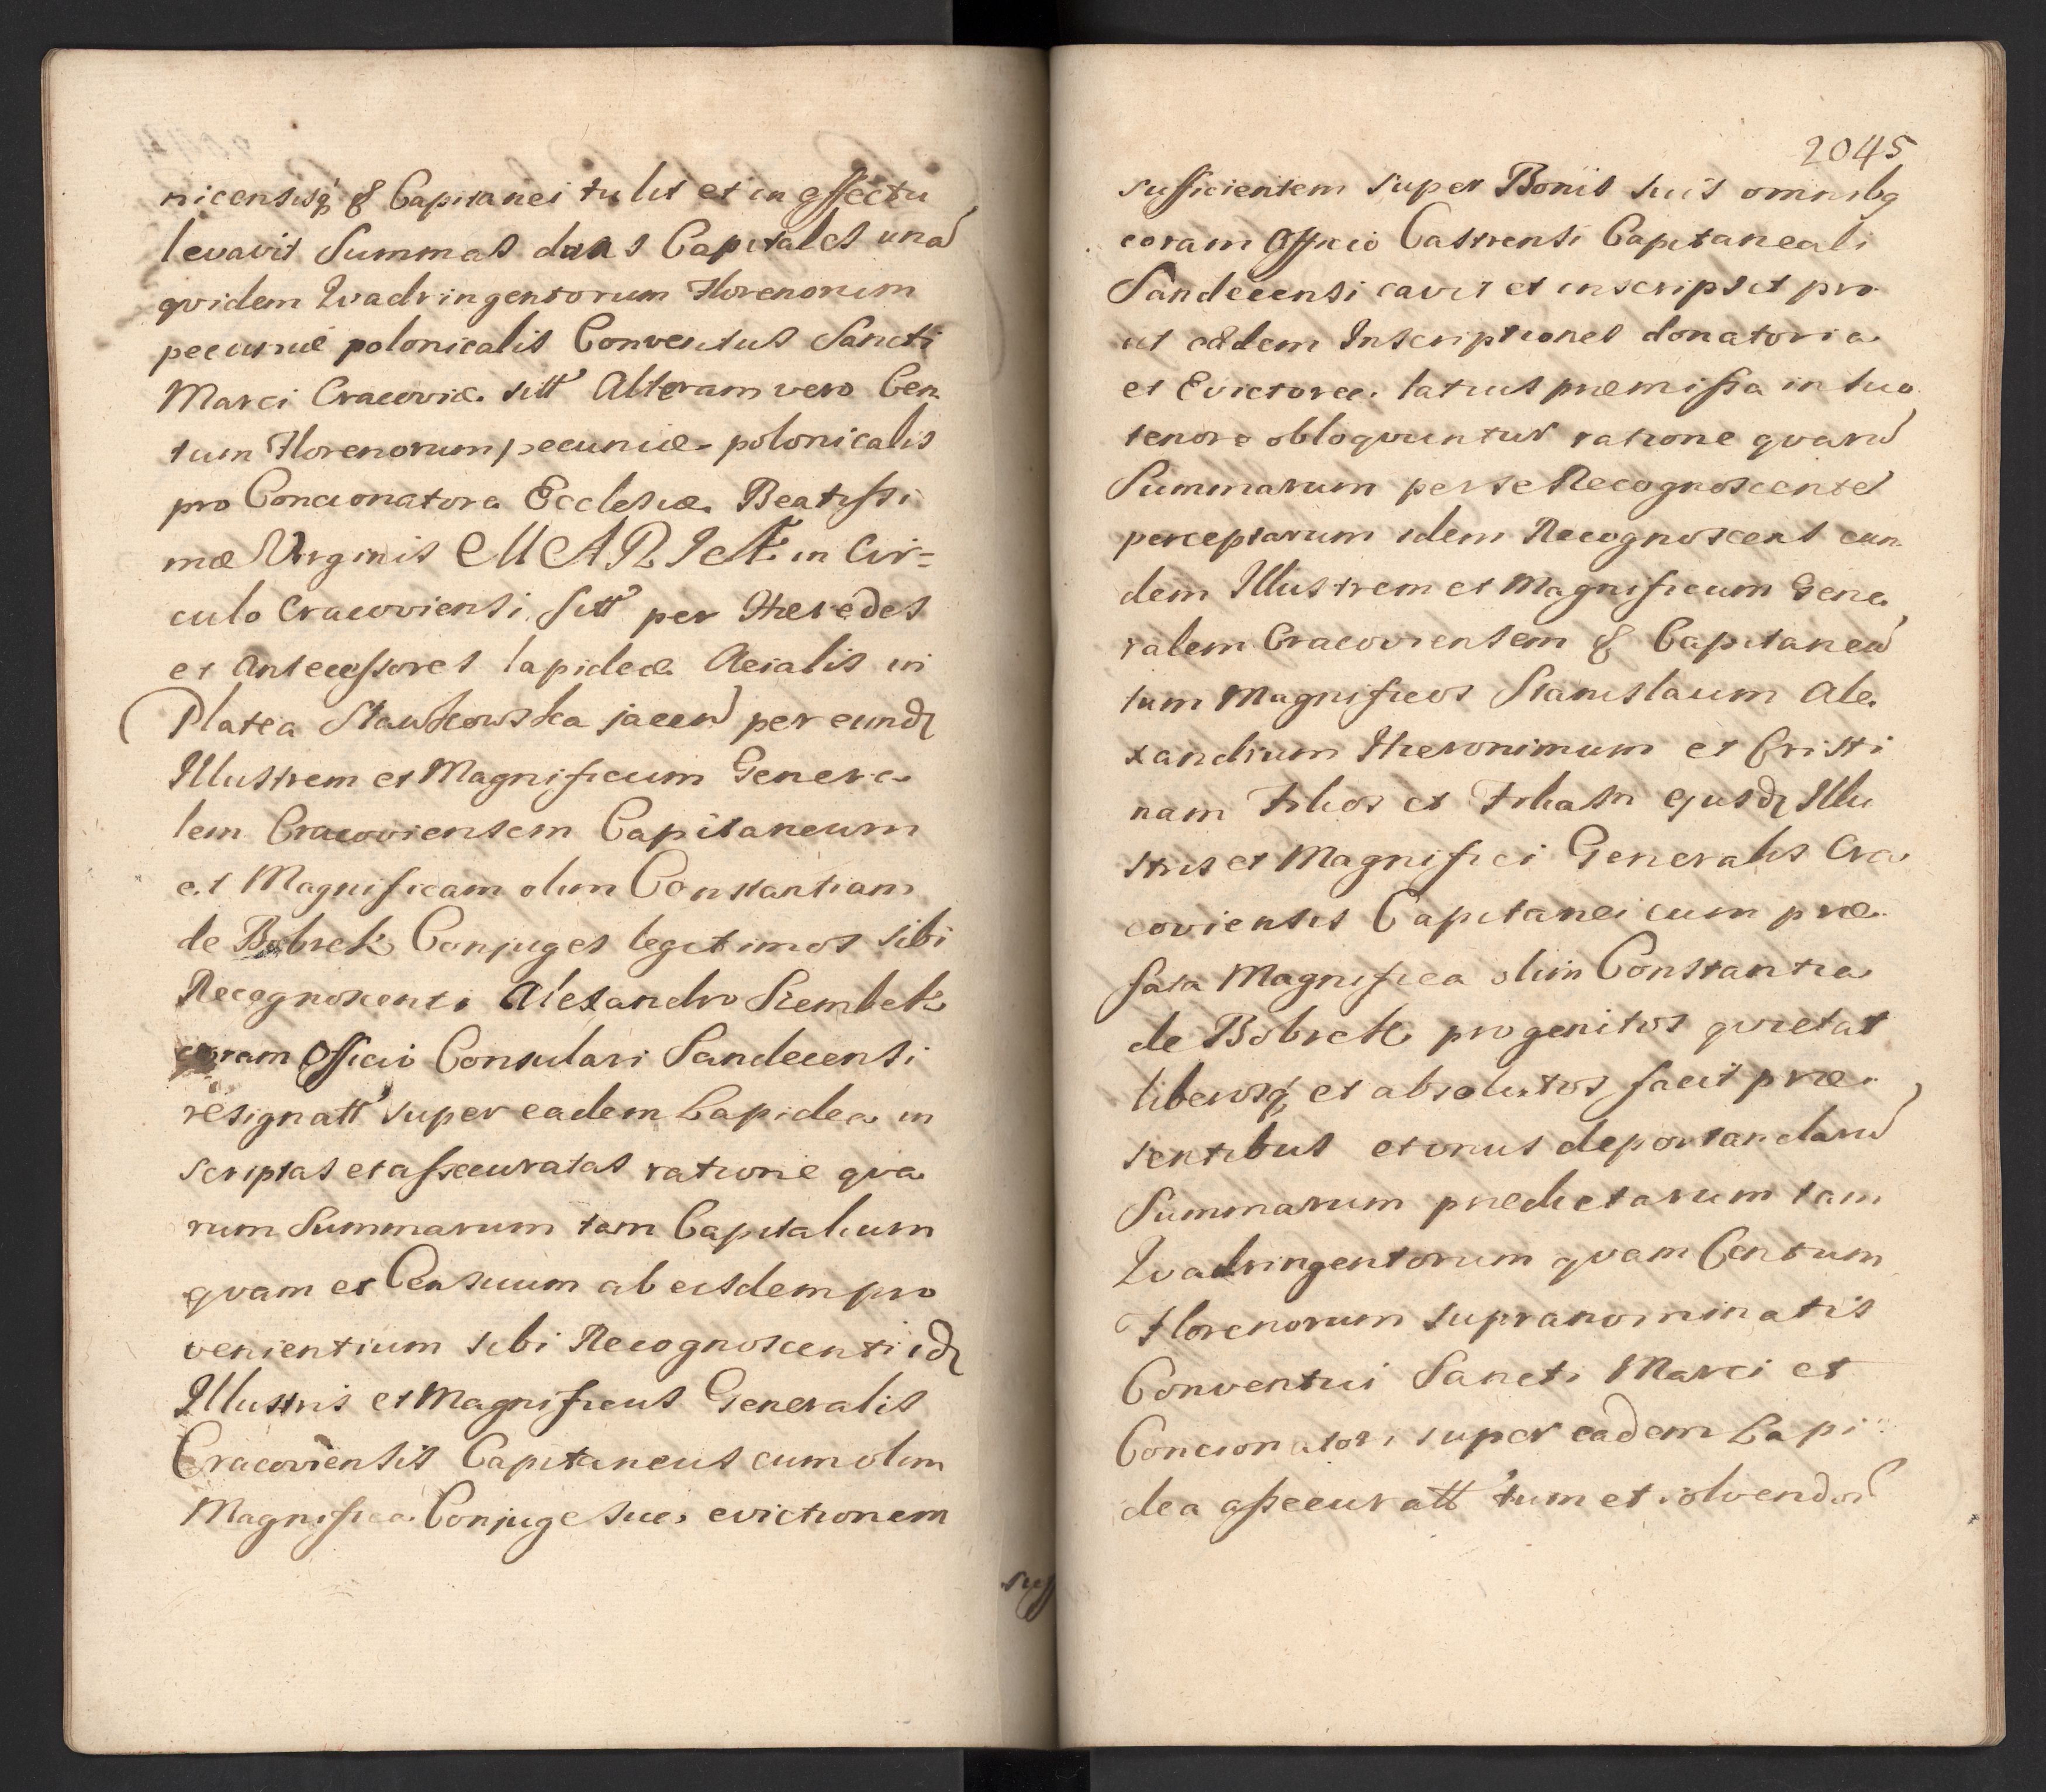 nicensisq₃ & Capitanei tulit et in effectu
levavit Summas duas Capitales unã
qvidem Qvadringentorum Florenorum
pecuniæ polonicalis Conventus Sancti
Marci Cracoviæ sitt Alteram vero Cen
tum Florenorum pecuniæ polonicalis
pro Concionatore Ecclesiæ Beatissi
mæ Virginis MARIÆ in Cir=
culo Cracoviensi sitt per Hæredes
et Antecessores lapideæ Acialis in
Platea Slawkowska jaceñ per eundȝ
Illustrem et Magnificum Genera
lem Cracoviensem Capitaneum
et Magnificam olim Constantiam
de Bobrek Conjuges legitimos sibi
Recognoscenti Alexandro Szembek
coram Officio Consulari Sandecensi
resignatt super eadem Lapidea in
scriptas et assecuratas ratione qva
rum Summarum tam Capitalium
qvam et Censuum ab eisdem pro
venientium sibi Recognoscenti idȝ
Illustris et Magnificus Generalis
Cracoviensis Capitaneus cum olim
Magnifica Conjuge sua evictionem
suff
2045
sufficientem super Bonis suis omnibq
coram Officio Castrensi Capitaneali
Sandecensi cavit et inscripsit pro
ut eædem Inscriptiones donatoria
et Evictoria latius præmissa in suo
tenore obloqvuntur ratione qvarũ
Summarum per se Recognoscentẽ
perceptarum idem Recognoscens eun
dem Illustrem et Magnificum Gene
ralem Cracoviensem & Capitaneũ
tum Magnificos Stanislaum Ale
xandrum Hieronimum et Cristi
nam Filios et Filiam ejusdȝ Illu
stris et Magnifici Generalis Cra
coviensis Capitanei cum præ
fata Magnifica olim Constantia
de Bobrek progenitos qvietat
liberosq₃ et absolutos facit præ
sentibus et onus deportandarũ
Summarum prædictarum tam
Qvadringentorum qvam Centum
Florenorum supranominatis
Conventui Sancti Marci et
Concionatori super eadem Lapi
dea assecuratt tum et solvendorũ